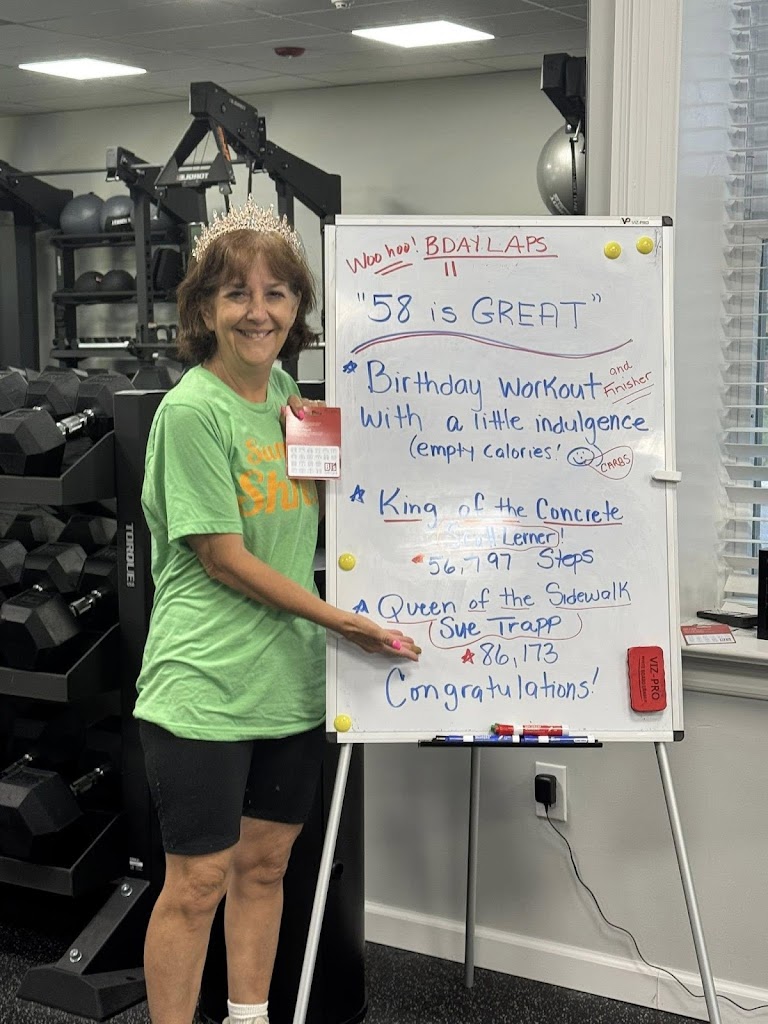 VIZ-PRO
Woo hoo! BDAY LAPS
"58 is GREAT"
Birthday Workout and Finisher
with a little indulgence
(empty calories! CARBS
King of the Concrete
Scott Lerner!
56,797 Steps
Queen of the Sidewalk
Sue Trapp
86,173
Congratulations!
VIZ-PRO
TORQUE